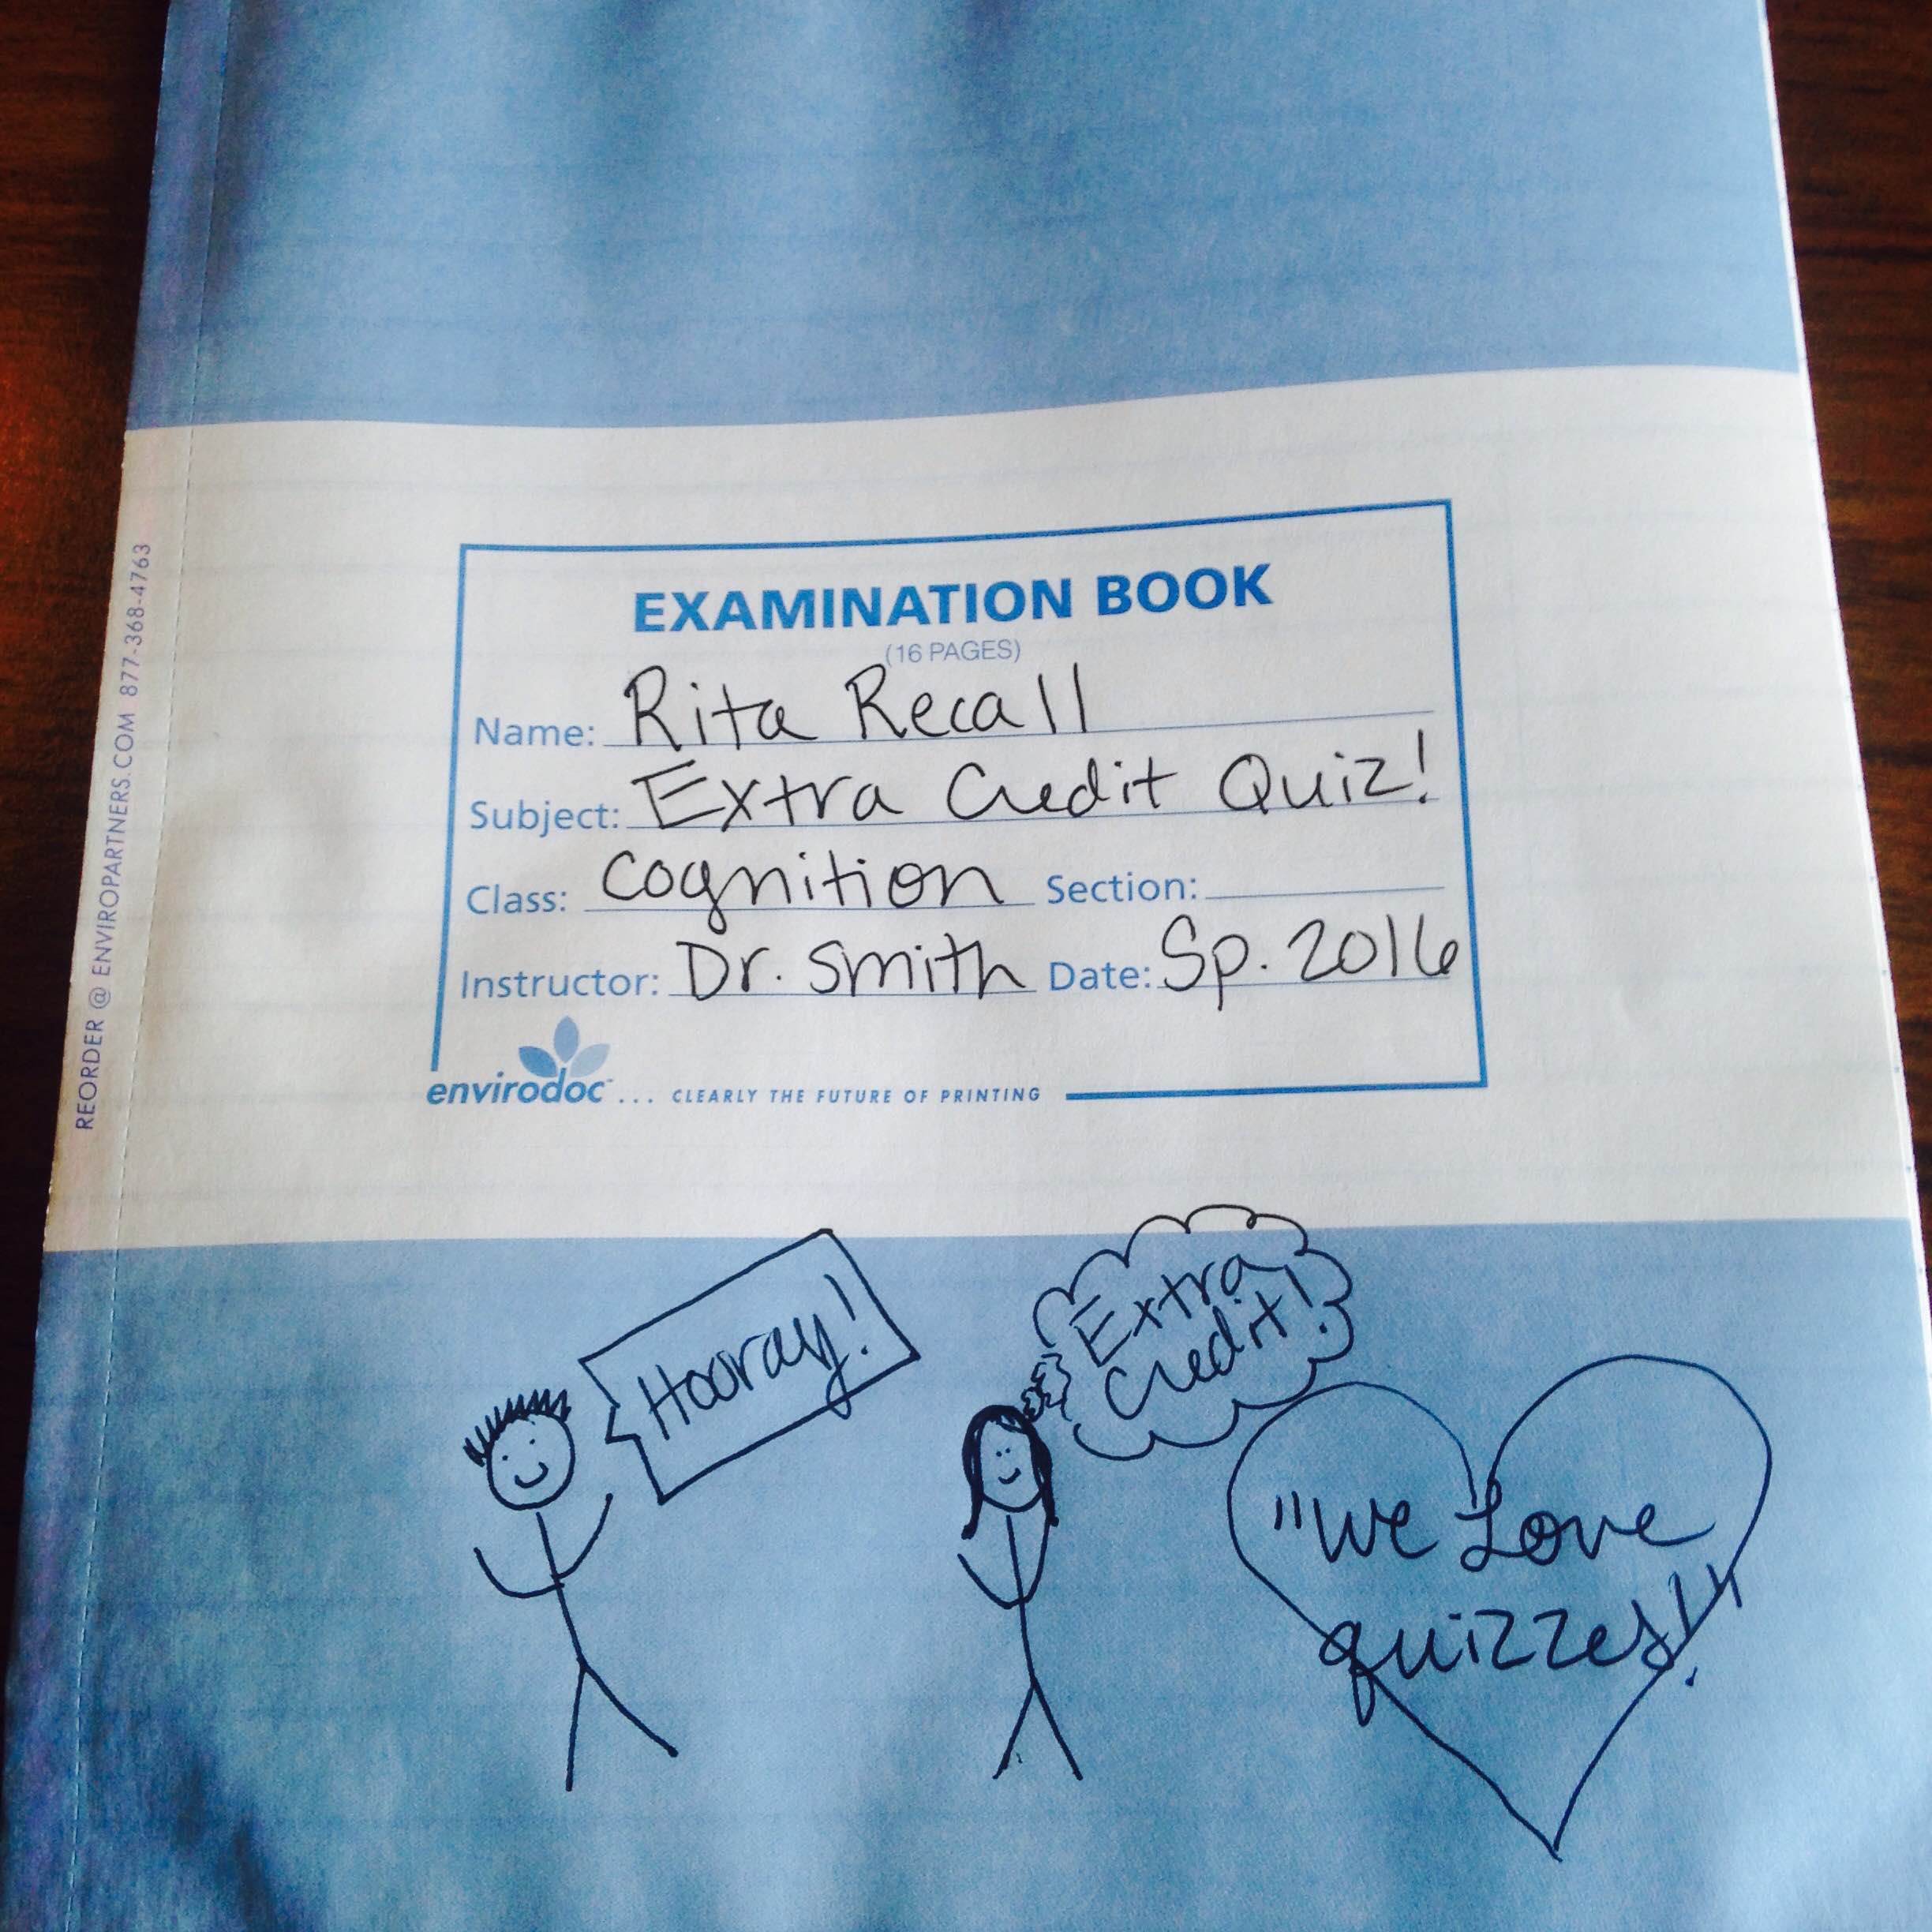 REORDER @ ENVIROPARTNERS.COM 877-368-4763
EXAMINATION BOOK
(16 PAGES)
Name: Rita Recall
Subject: Extra Credit Quiz!
Class: Cognition Section:
Instructor: Dr. Smith Date: Sp. 2016
envirodoc™ ... CLEARLY THE FUTURE OF PRINTING
Hooray!
Extra
Credit!
"We Love
quizzes!"